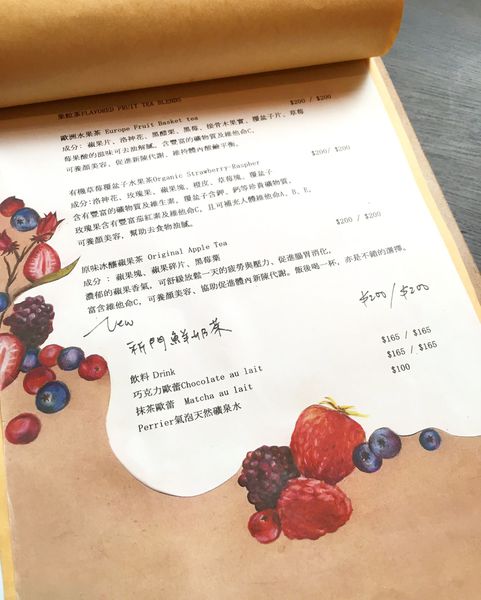 果粒茶FLAVORED FRUIT TEA BLENDS
歐洲水果茶 Europe Fruit Basket tea $200 / $200
成分: 蘋果片、洛神花、黑醋栗、黑莓、接骨木果實、覆盆子片、草莓
莓果酸的滋味可去油解膩。含豐富的礦物質及維他命C,
可養顏美容、促進新陳代謝、維持體內酸鹼平衡。
有機草莓覆盆子水果茶Organic Strawberry-Raspber $200/ $200
成分:洛神花、玫瑰果、蘋果塊、橙皮、草莓塊、覆盆子
含有豐富的礦物質及維生素。覆盆子含鉀、鈣等珍貴礦物質,
玫瑰果含有豐富茄紅素及維他命C,且可補充人體維他命A、B、E,
可養顏美容,幫助去食物油膩。
原味冰釀蘋果茶 Original Apple Tea $200 / $200
成分 : 蘋果塊、蘋果碎片、黑莓葉
濃郁的蘋果香氣,可舒緩放鬆一天的疲勞與壓力、促進腸胃消化,
富含維他命C,可養顏美容、協助促進體內新陳代謝。飯後喝一杯,亦是不錯的選擇。
New
新門鮮奶茶 $200 / $200
飲料 Drink
巧克力歐蕾Chocolate au lait $165 / $165
抹茶歐蕾 Matcha au lait $165 / $165
Perrier氣泡天然礦泉水 $100